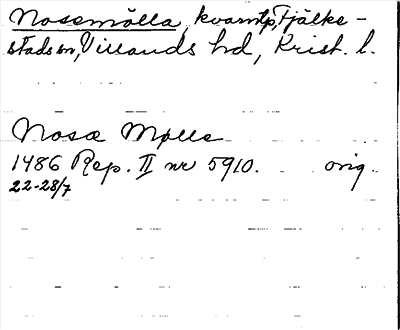 Nosemölla, kvarntp, Fjälke-
stads sn, Villands hd, Krist. l.
Nosæ Mølle
1486 Rep. II nr 5910. orig.
22-28/7